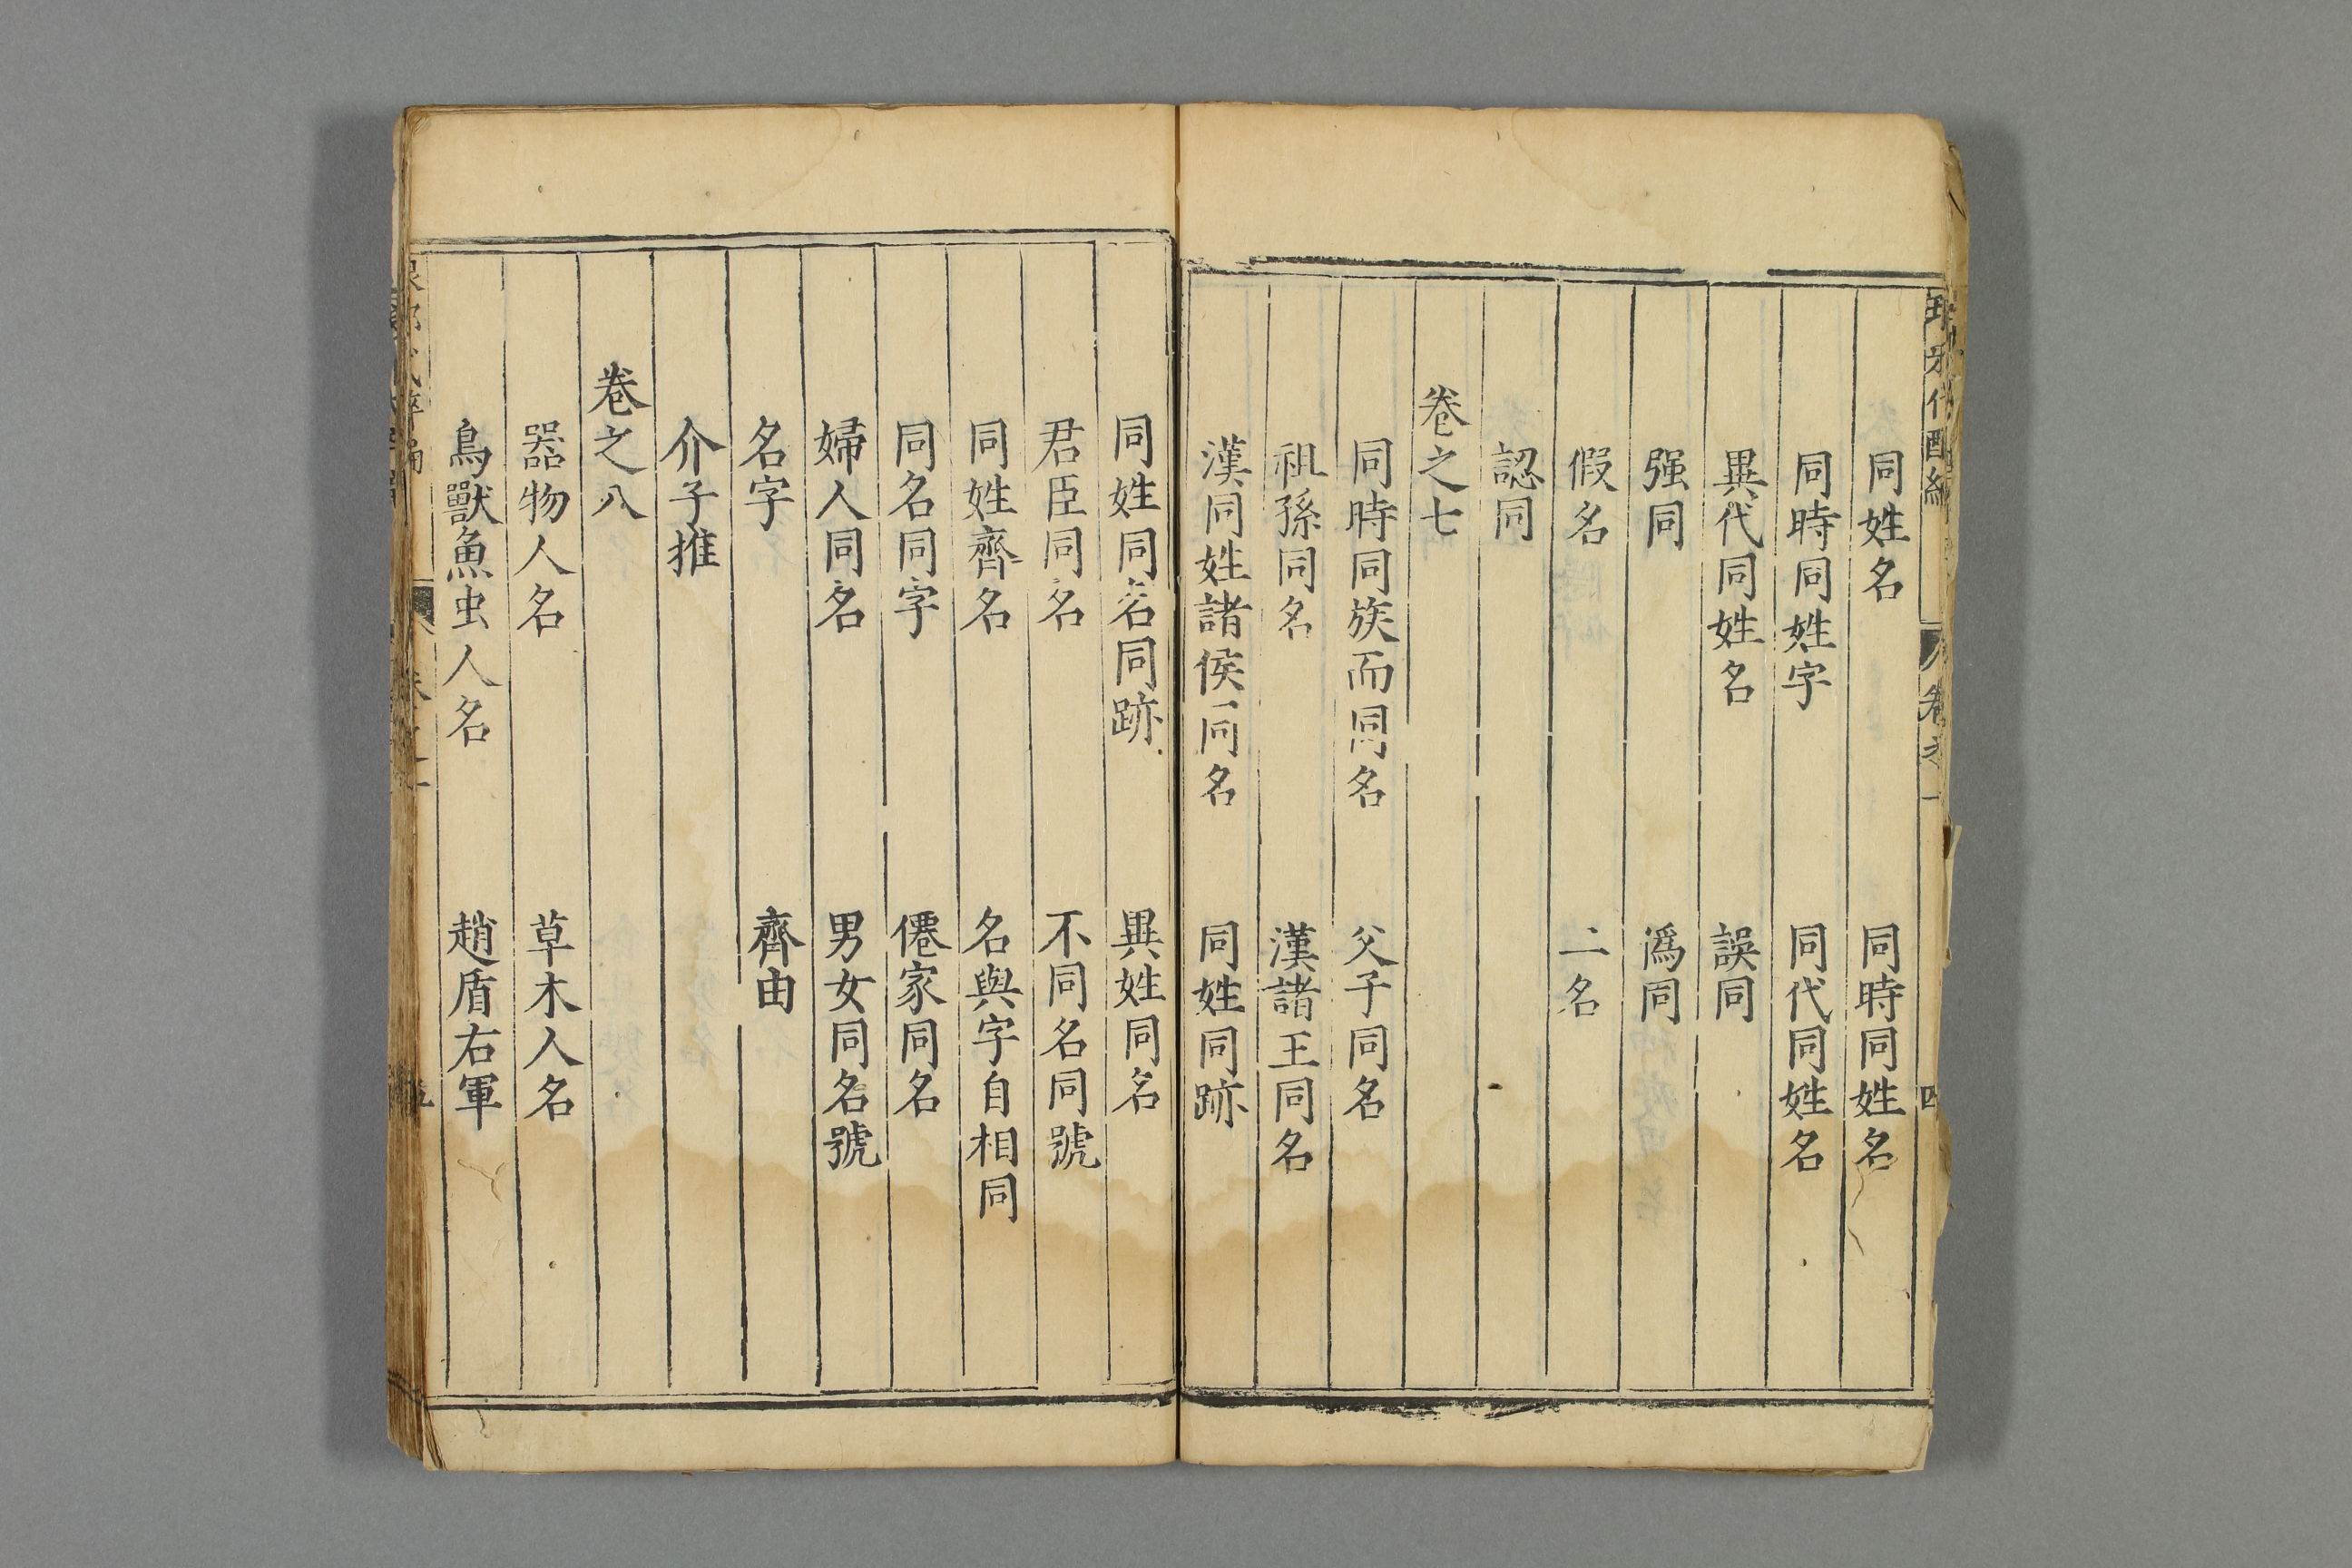 同姓名　同時同姓名
同時同姓字　同代同姓名
異代同姓名　誤同
强同　僞同
假名　二名
認同
卷之七
同時同族而同名　父子同名
祖孫同名　漢諸王同名
漢同姓諸侯同名　同姓同跡
同姓同名同跡　異姓同名
君臣同名　不同名同號
同姓齊名　名與字自相同
同名同字　僊家同名
婦人同名　男女同名號
名字　齊由
介子推
卷之八
器物人名　草木人名
鳥獸魚虫人名　趙盾右軍